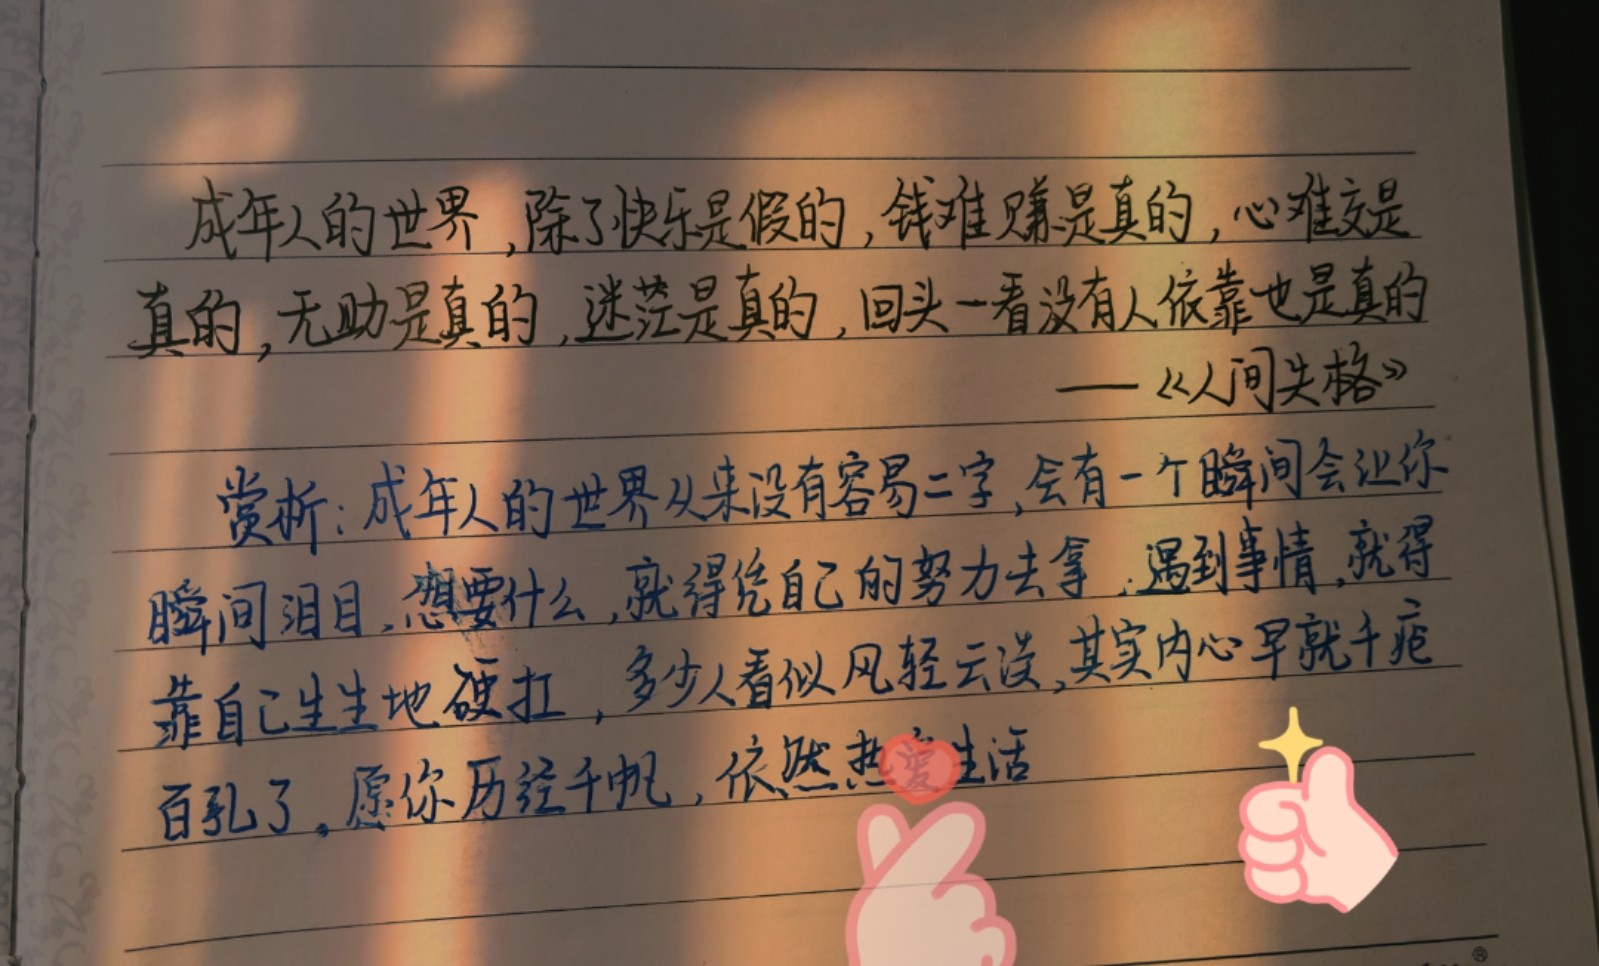 成年人的世界,除了快乐是假的,钱难赚是真的,心难交是
真的,无助是真的,迷茫是真的,回头一看没有人依靠也是真的
——《人间失格》
赏析:成年人的世界从来没有容易二字,会有一个瞬间会让你
瞬间泪目,想要什么,就得凭自己的努力去拿,遇到事情,就得
靠自己生生地硬扛,多少人看似风轻云淡,其实内心早就千疮
百孔了。愿你历经千帆,依然热爱生活
®